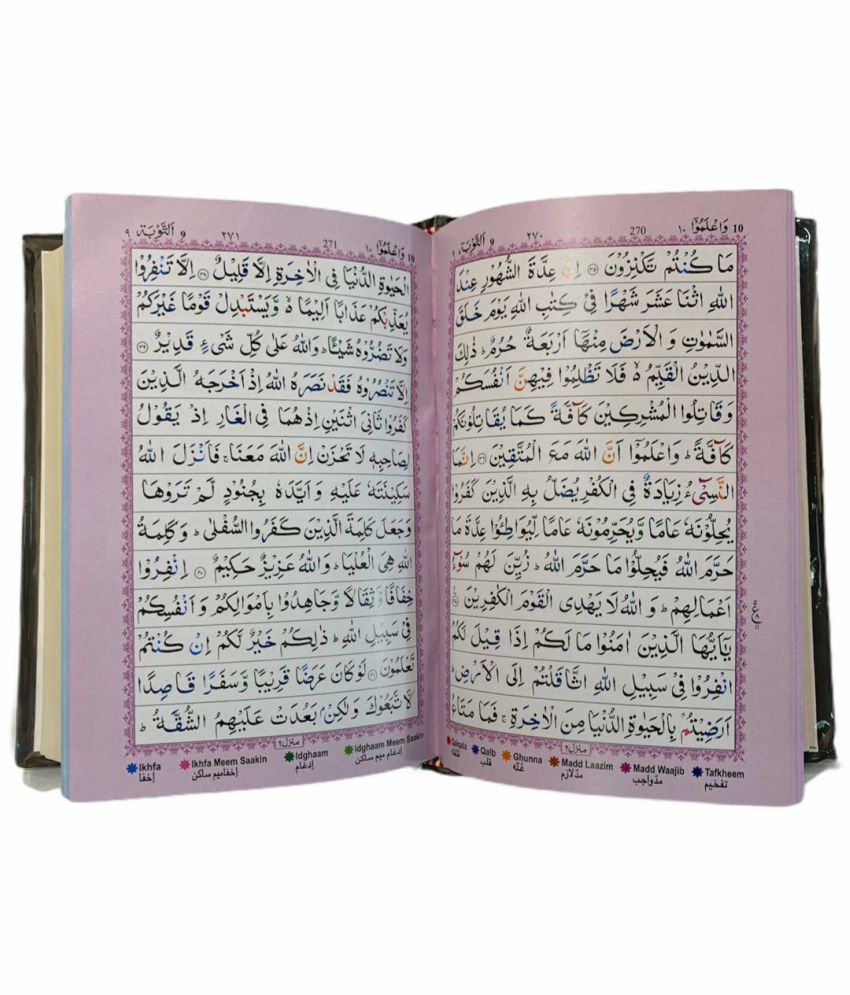 10 وَاعْلَمُوْٓا ١٠ 270 ٢٧٠ 9 اَلتَّوْبَة ٩
مَا كُنْتُمْ تَكْنِزُوْنَ ﴿۳۵﴾ اِنَّ عِدَّةَ الشُّهُوْرِ عِنْدَ
اللّٰهِ اثْنَا عَشَرَ شَهْرًا فِيْ كِتٰبِ اللّٰهِ يَوْمَ خَلَقَ
السَّمٰوٰتِ وَ الْاَرْضَ مِنْهَآ اَرْبَعَةٌ حُرُمٌ ؕ ذٰلِكَ
الدِّيْنُ الْقَيِّمُ ۙ فَلَا تَظْلِمُوْا فِيْهِنَّ اَنْفُسَكُمْ
وَ قَاتِلُوا الْمُشْرِكِيْنَ كَآفَّةً كَمَا يُقَاتِلُوْنَكُمْ
كَآفَّةً ؕ وَاعْلَمُوْٓا اَنَّ اللّٰهَ مَعَ الْمُتَّقِيْنَ ﴿۳۶﴾ اِنَّمَا
النَّسِيْٓءُ زِيَادَةٌ فِي الْكُفْرِ يُضَلُّ بِهِ الَّذِيْنَ كَفَرُوْا
يُحِلُّوْنَهٗ عَامًا وَّيُحَرِّمُوْنَهٗ عَامًا لِّيُوَاطِـُٔوْا عِدَّةَ مَا
حَرَّمَ اللّٰهُ فَيُحِلُّوْا مَا حَرَّمَ اللّٰهُ ؕ زُيِّنَ لَهُمْ سُوْٓءُ
اَعْمَالِهِمْ ؕ وَ اللّٰهُ لَا يَهْدِى الْقَوْمَ الْكٰفِرِيْنَ ﴿۳۷﴾
يٰٓاَيُّهَا الَّذِيْنَ اٰمَنُوْا مَا لَكُمْ اِذَا قِيْلَ لَكُمُ
انْفِرُوْا فِيْ سَبِيْلِ اللّٰهِ اثَّاقَلْتُمْ اِلَى الْاَرْضِ ؕ
اَرَضِيْتُمْ بِالْحَيٰوةِ الدُّنْيَا مِنَ الْاٰخِرَةِ ۚ فَمَا مَتَاعُ
منزل ٢
Qalqala Qalb Ghunna Madd Laazim Madd Waajib Tafkheem
قلقلة قلب غنّه مدّلازم مدّواجب تفخيم
10 وَاعْلَمُوْٓا ١٠ 271 ٢٧١ 9 اَلتَّوْبَة ٩
الْحَيٰوةِ الدُّنْيَا فِي الْاٰخِرَةِ اِلَّا قَلِيْلٌ ﴿۳۸﴾ اِلَّا تَنْفِرُوْا
يُعَذِّبْكُمْ عَذَابًا اَلِيْمًا ۙ وَّيَسْتَبْدِلْ قَوْمًا غَيْرَكُمْ
وَلَا تَضُرُّوْهُ شَيْـًٔا ؕ وَاللّٰهُ عَلٰى كُلِّ شَيْءٍ قَدِيْرٌ ﴿۳۹﴾
اِلَّا تَنْصُرُوْهُ فَقَدْ نَصَرَهُ اللّٰهُ اِذْ اَخْرَجَهُ الَّذِيْنَ
كَفَرُوْا ثَانِيَ اثْنَيْنِ اِذْ هُمَا فِي الْغَارِ اِذْ يَقُوْلُ
لِصَاحِبِهٖ لَا تَحْزَنْ اِنَّ اللّٰهَ مَعَنَا ۚ فَاَنْزَلَ اللّٰهُ
سَكِيْنَتَهٗ عَلَيْهِ وَ اَيَّدَهٗ بِجُنُوْدٍ لَّمْ تَرَوْهَا
وَجَعَلَ كَلِمَةَ الَّذِيْنَ كَفَرُوا السُّفْلٰى ؕ وَكَلِمَةُ
اللّٰهِ هِيَ الْعُلْيَا ؕ وَاللّٰهُ عَزِيْزٌ حَكِيْمٌ ﴿۴۰﴾ اِنْفِرُوْا
خِفَافًا وَّثِقَالًا وَّجَاهِدُوْا بِاَمْوَالِكُمْ وَ اَنْفُسِكُمْ
فِيْ سَبِيْلِ اللّٰهِ ؕ ذٰلِكُمْ خَيْرٌ لَّكُمْ اِنْ كُنْتُمْ
تَعْلَمُوْنَ ﴿۴۱﴾ لَوْ كَانَ عَرَضًا قَرِيْبًا وَّسَفَرًا قَاصِدًا
لَّاتَّبَعُوْكَ وَلٰكِنْۢ بَعُدَتْ عَلَيْهِمُ الشُّقَّةُ ؕ
منزل ٢
Ikhfa Ikhfa Meem Saakin Idghaam Idghaam Meem Saakin
إخفا إخفاميم ساكن إدغام إدغام ميم ساكن